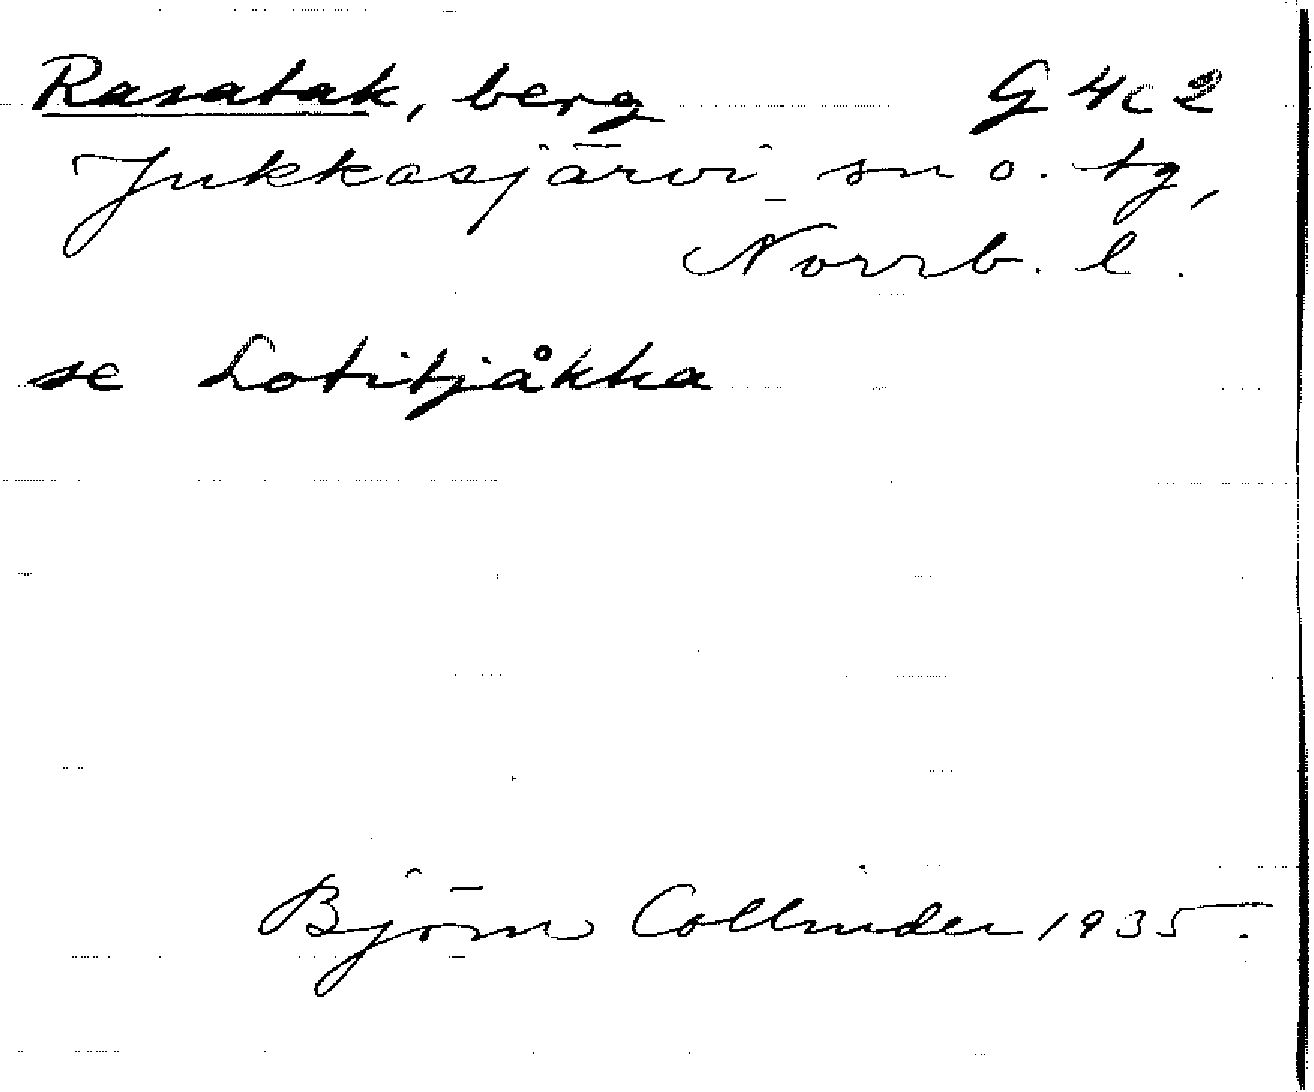 Rasatak, berg G 4c2
Jukkasjärvi sn o. tg,
Norrb. l.
se Lotitjåkka
Björn Collinder 1935.